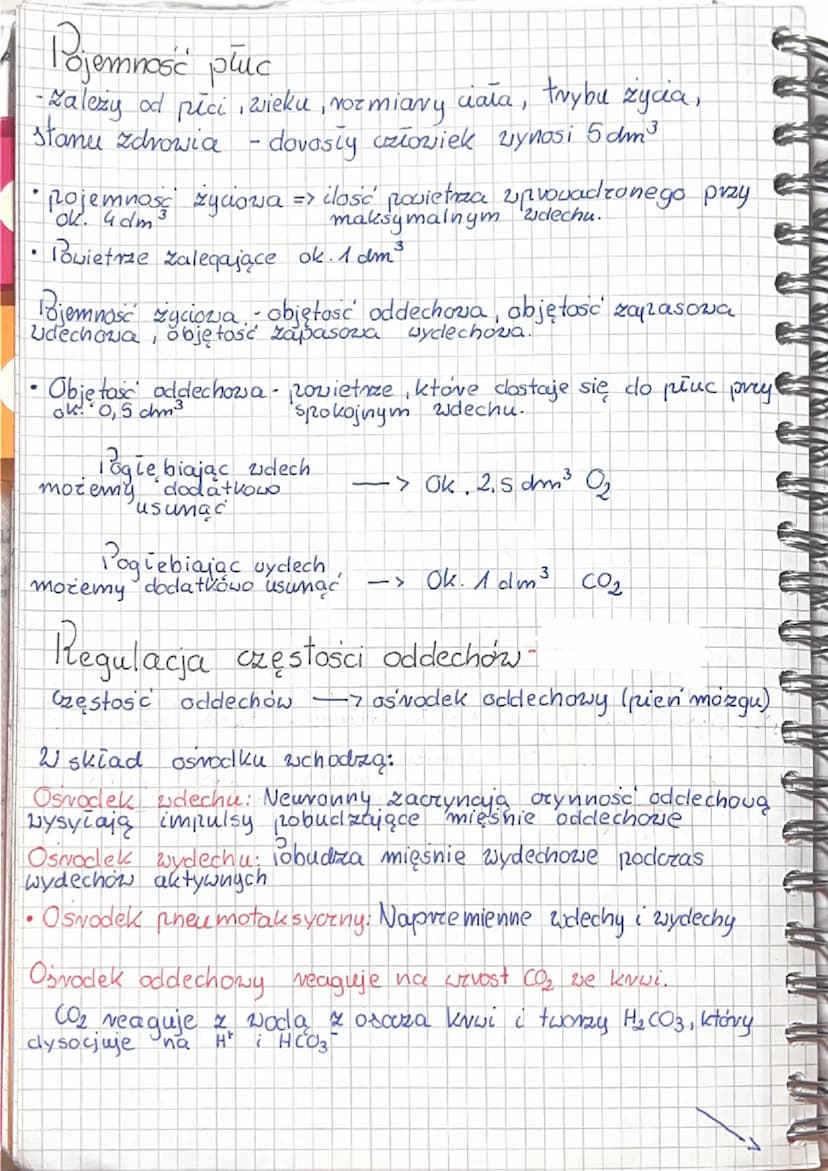 Pojemność płuc
- Zależy od płci, wieku, rozmiary ciała, trybu życia,
stanu zdrowia - dorosły człowiek wynosi 5 dm³
• pojemność życiowa => ilość powietrza wprowadzonego przy
ok. 4 dm³ maksymalnym wdechu.
• Powietrze zalegające ok. 1 dm³
Pojemność życiowa - objętość oddechowa, objętość zapasowa
wdechowa, objętość zapasowa wydechowa.
• Objętość oddechowa - powietrze, które dostaje się do płuc przy
ok. 0,5 dm³ spokojnym wdechu.
Pogłębiając wdech
możemy dodatkowo —> Ok. 2,5 dm³ O₂
usunąć
Pogłebiając wydech
możemy dodatkowo usunąć —> Ok. 1 dm³ CO₂
Regulacja częstości oddechów -
Częstość oddechów —> ośrodek oddechowy (pień mózgu)
W skład osrodku wchodzą:
Osrodek wdechu: Neuronny zaczyncają czynność oddechową
wysyłają impulsy pobudzające mięśnie oddechowe
Osrodek wydechu: Pobudza mięsnie wydechowe podczas
wydechów aktywnych
• Ośrodek pneumotaksyczny: Naprzemienne wdechy i wydechy
Ośrodek oddechowy reaguje na wzrost CO₂ we krwi.
CO₂ reaguje z wodą z osocza krwi i tworzy H₂CO₃, który
dysocjuje na H⁺ i HCO₃⁻